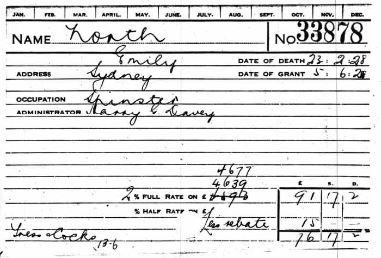 JAN. FEB. MAR. APRIL. MAY. JUNE. JULY. AUG. SEPT. OCT. NOV. DEC.
NAME North No 33878
Emily DATE OF DEATH 23: 2: 28
ADDRESS Sydney DATE OF GRANT 5: 6: 28
OCCUPATION Spinster
ADMINISTRATOR Harry E Davey
4677
4639
£ S. D.
2 % FULL RATE ON £ 91 17 2
% HALF RATE ON £ Less rebate 15 —
Cocks 13.6 76 17 2